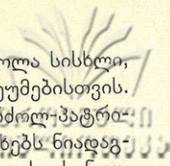 ოლა სისხლი,
ეუმებისთვის.
ძმოლ-პატრი-
ხებს ნიადაგ-